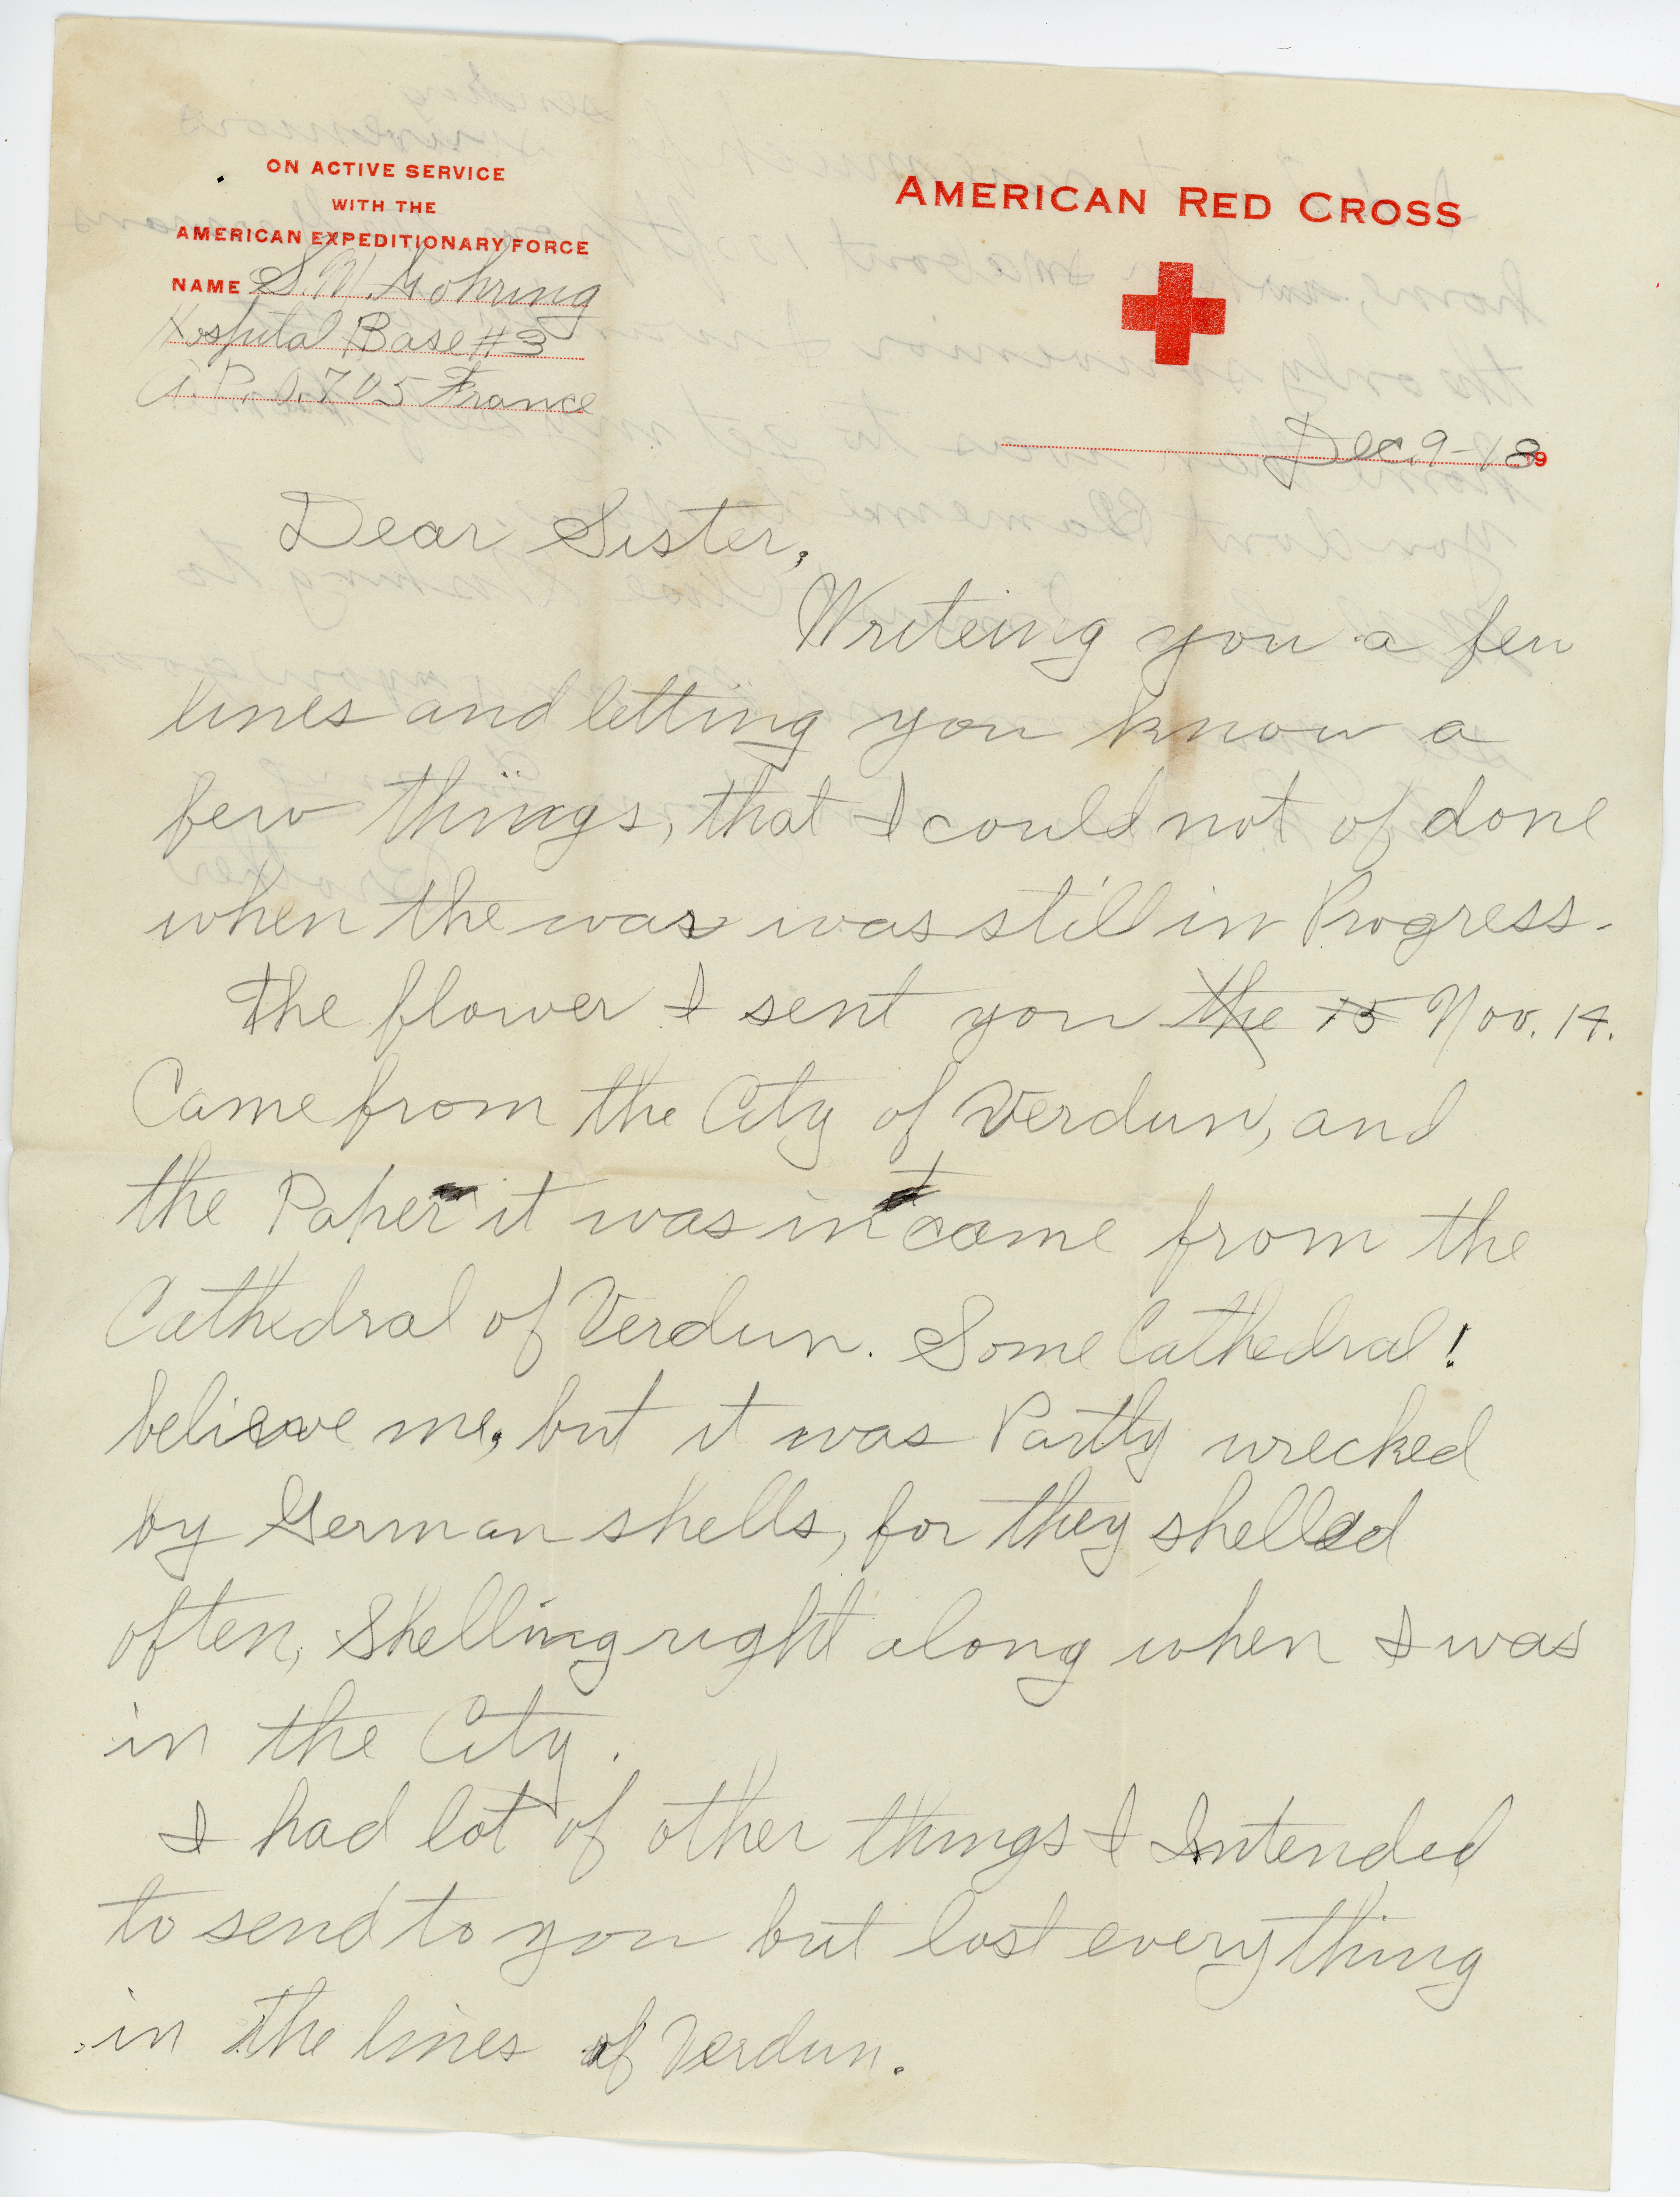 ON ACTIVE SERVICE
WITH THE
AMERICAN EXPEDITIONARY FORCE
NAME S. M. Gohring
Hospital Base #3
A.P.O. 705 France
AMERICAN RED CROSS
Dec. 9-18 19
Dear Sister,
Writeing you a few
lines and letting you know a
few things, that I could not of done
when the war was still in Progress.
The flower I sent you the 15 Nov. 14.
Came from the City of Verdun, and
the Paper it was in came from the
Cathedral of Verdun. Some Cathedral!
believe me, but it was Partly wrecked
by German shells, for they shelled
often, Shelling right along when I was
in the City.
I had lot of other things I Intended
to send to you but lost everything
in the lines of Verdun.